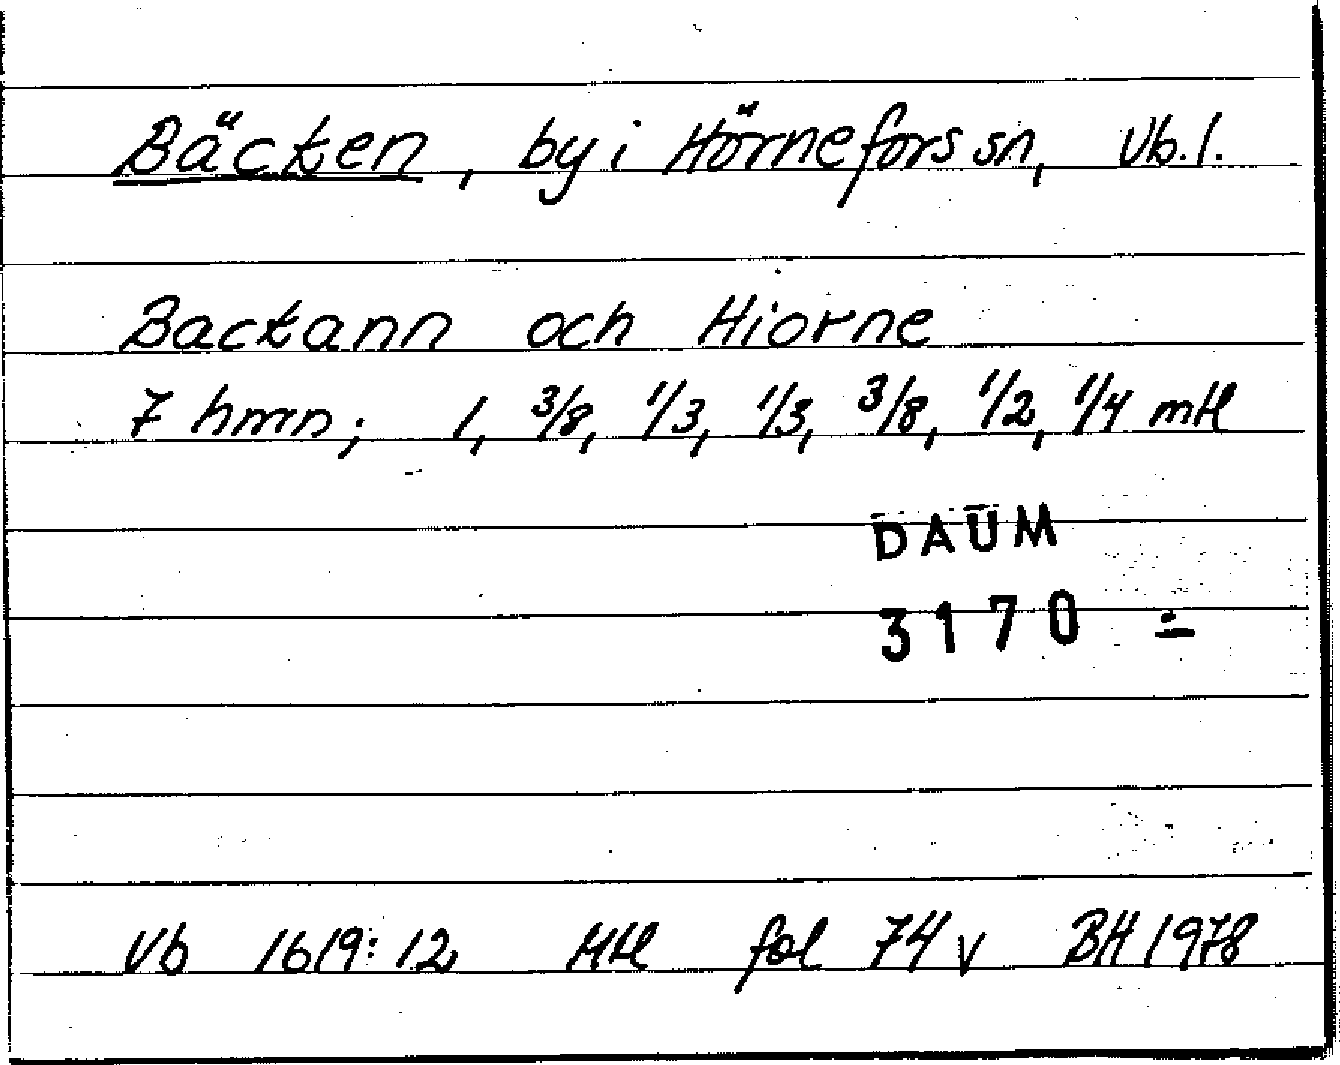 Bäcken, by i Hörnefors sn, Vb. l.
Backann och Hiorne
7 hmn; 1, 3/8, 1/3, 1/3, 3/8, 1/2, 1/4 mtl
DAUM
3170 -
Vb 1619:12 Mtl fol 74 v BH 1978